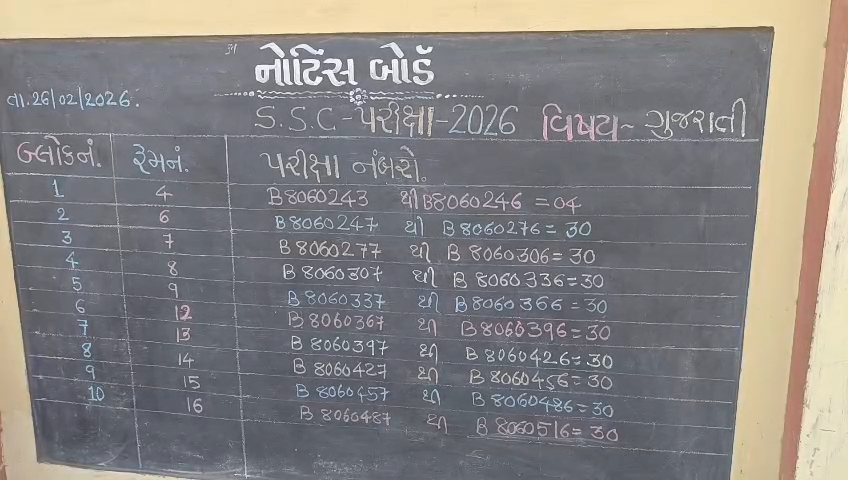 અ નોટિસ બોર્ડ
તા.26/02/2026.
S.S.C-પરીક્ષા-2026 વિષય- ગુજરાતી
બ્લોકનં. રૂમનં. પરીક્ષા નંબરો.
1 4 B8060243 થી B8060246 = 04
2 6 B8060247 થી B8060276 = 30
3 7 B8060277 થી B8060306 = 30
4 8 B8060307 થી B8060336 = 30
5 9 B8060337 થી B8060366 = 30
6 12 B8060367 થી B8060396 = 30
7 13 B8060397 થી B8060426 = 30
8 14 B8060427 થી B8060456 = 30
9 15 B8060457 થી B8060486 = 30
10 16 B8060487 થી B8060516 = 30